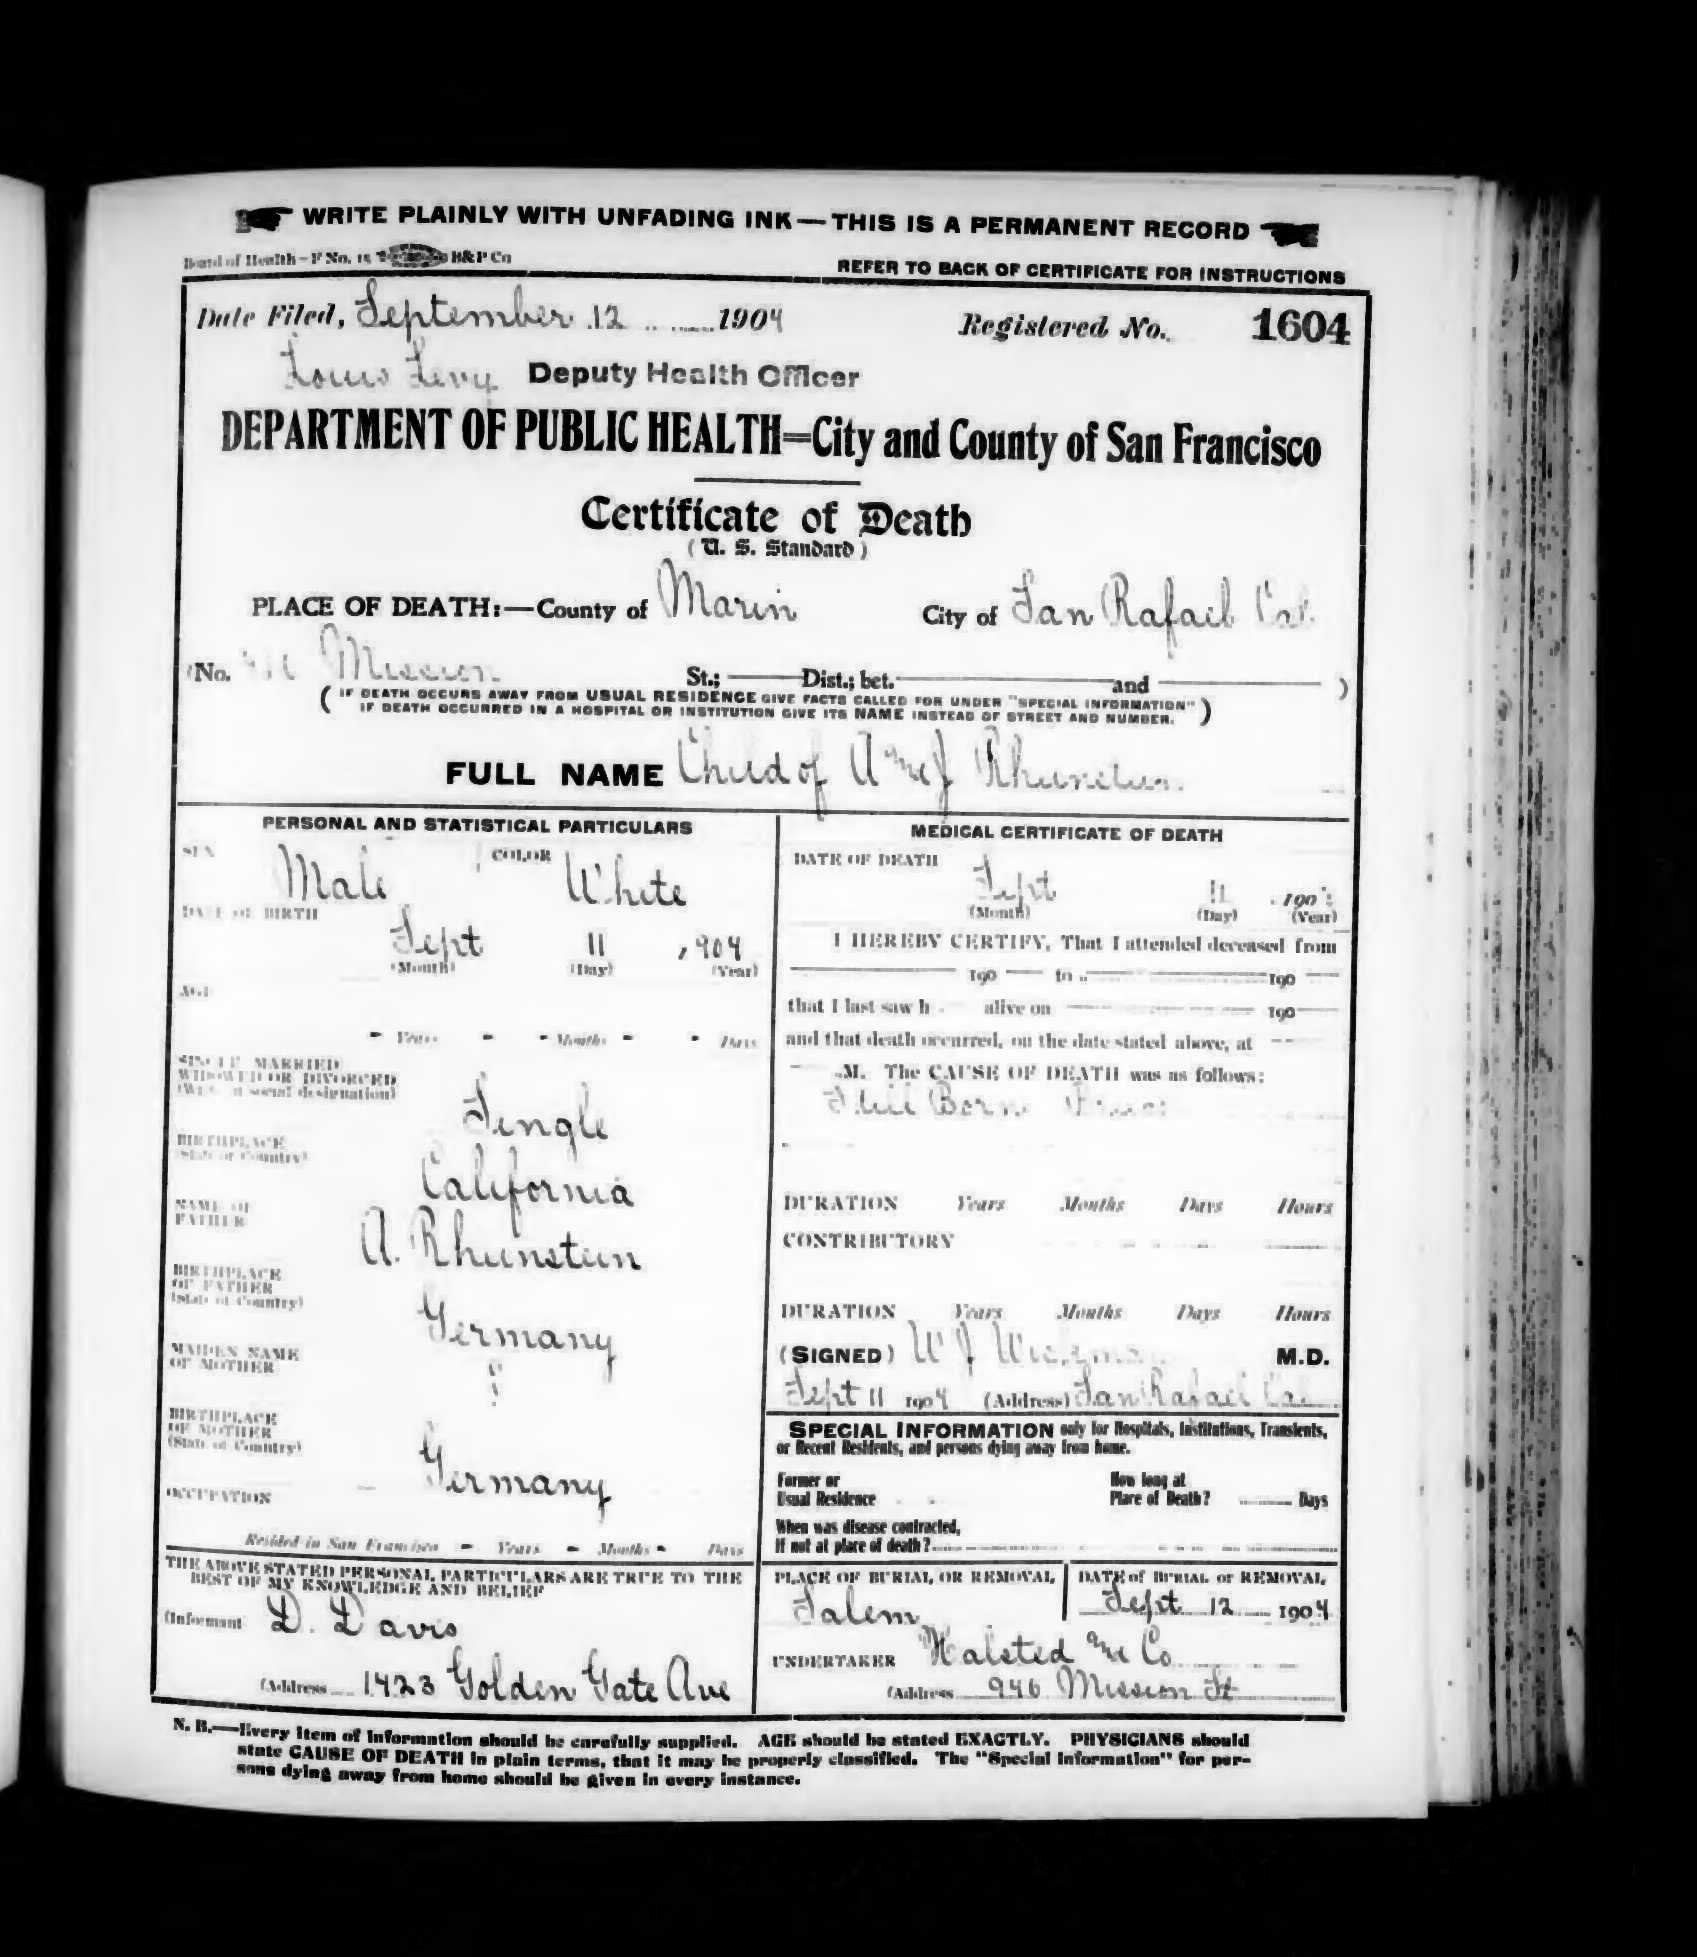 WRITE PLAINLY WITH UNFADING INK — THIS IS A PERMANENT RECORD
Board of Health—F No. 15 H&P Co
REFER TO BACK OF CERTIFICATE FOR INSTRUCTIONS
Date Filed, September 12 1904 Registered No. 1604
Louis Levy Deputy Health Officer
DEPARTMENT OF PUBLIC HEALTH=City and County of San Francisco
Certificate of Death
( U. S. Standard )
PLACE OF DEATH:—County of Marin City of San Rafael Cal
(No. Mission St.; Dist.; bet. and )
( IF DEATH OCCURS AWAY FROM USUAL RESIDENCE GIVE FACTS CALLED FOR UNDER "SPECIAL INFORMATION"
IF DEATH OCCURRED IN A HOSPITAL OR INSTITUTION GIVE ITS NAME INSTEAD OF STREET AND NUMBER. )
FULL NAME Child of A and J Rheinstein
PERSONAL AND STATISTICAL PARTICULARS
SEX Male COLOR White
DATE OF BIRTH
Sept 11 , 904
(Month) (Day) (Year)
AGE
- Years - - Months - - Days
SINGLE MARRIED
WIDOWED OR DIVORCED
(Write in social designation)
Single
BIRTHPLACE
(State or Country)
California
NAME OF
FATHER
A. Rheinstein
BIRTHPLACE
OF FATHER
(State or Country)
Germany
MAIDEN NAME
OF MOTHER
BIRTHPLACE
OF MOTHER
(State or Country)
Germany
OCCUPATION
Resided in San Francisco - Years - Months - Days
THE ABOVE STATED PERSONAL PARTICULARS ARE TRUE TO THE
BEST OF MY KNOWLEDGE AND BELIEF
(Informant D. Davis
(Address 1423 Golden Gate Ave
MEDICAL CERTIFICATE OF DEATH
DATE OF DEATH
Sept 11 , 190
(Month) (Day) (Year)
I HEREBY CERTIFY, That I attended deceased from
190 to 190
that I last saw h alive on 190
and that death occurred, on the date stated above, at
M. The CAUSE OF DEATH was as follows:
Still Born
DURATION Years Months Days Hours
CONTRIBUTORY
DURATION Years Months Days Hours
(SIGNED) W J M.D.
Sept 11 1904 (Address) San Rafael Cal
SPECIAL INFORMATION only for Hospitals, Institutions, Transients,
or Recent Residents, and persons dying away from home.
Former or
Usual Residence
How long at
Place of Death? Days
When was disease contracted,
If not at place of death?
PLACE OF BURIAL OR REMOVAL
Salem
DATE of BURIAL or REMOVAL
Sept 12 1904
UNDERTAKER Halsted and Co
(Address 946 Mission St
N. B.—Every item of information should be carefully supplied. AGE should be stated EXACTLY. PHYSICIANS should
state CAUSE OF DEATH in plain terms, that it may be properly classified. The "Special Information" for per-
sons dying away from home should be given in every instance.